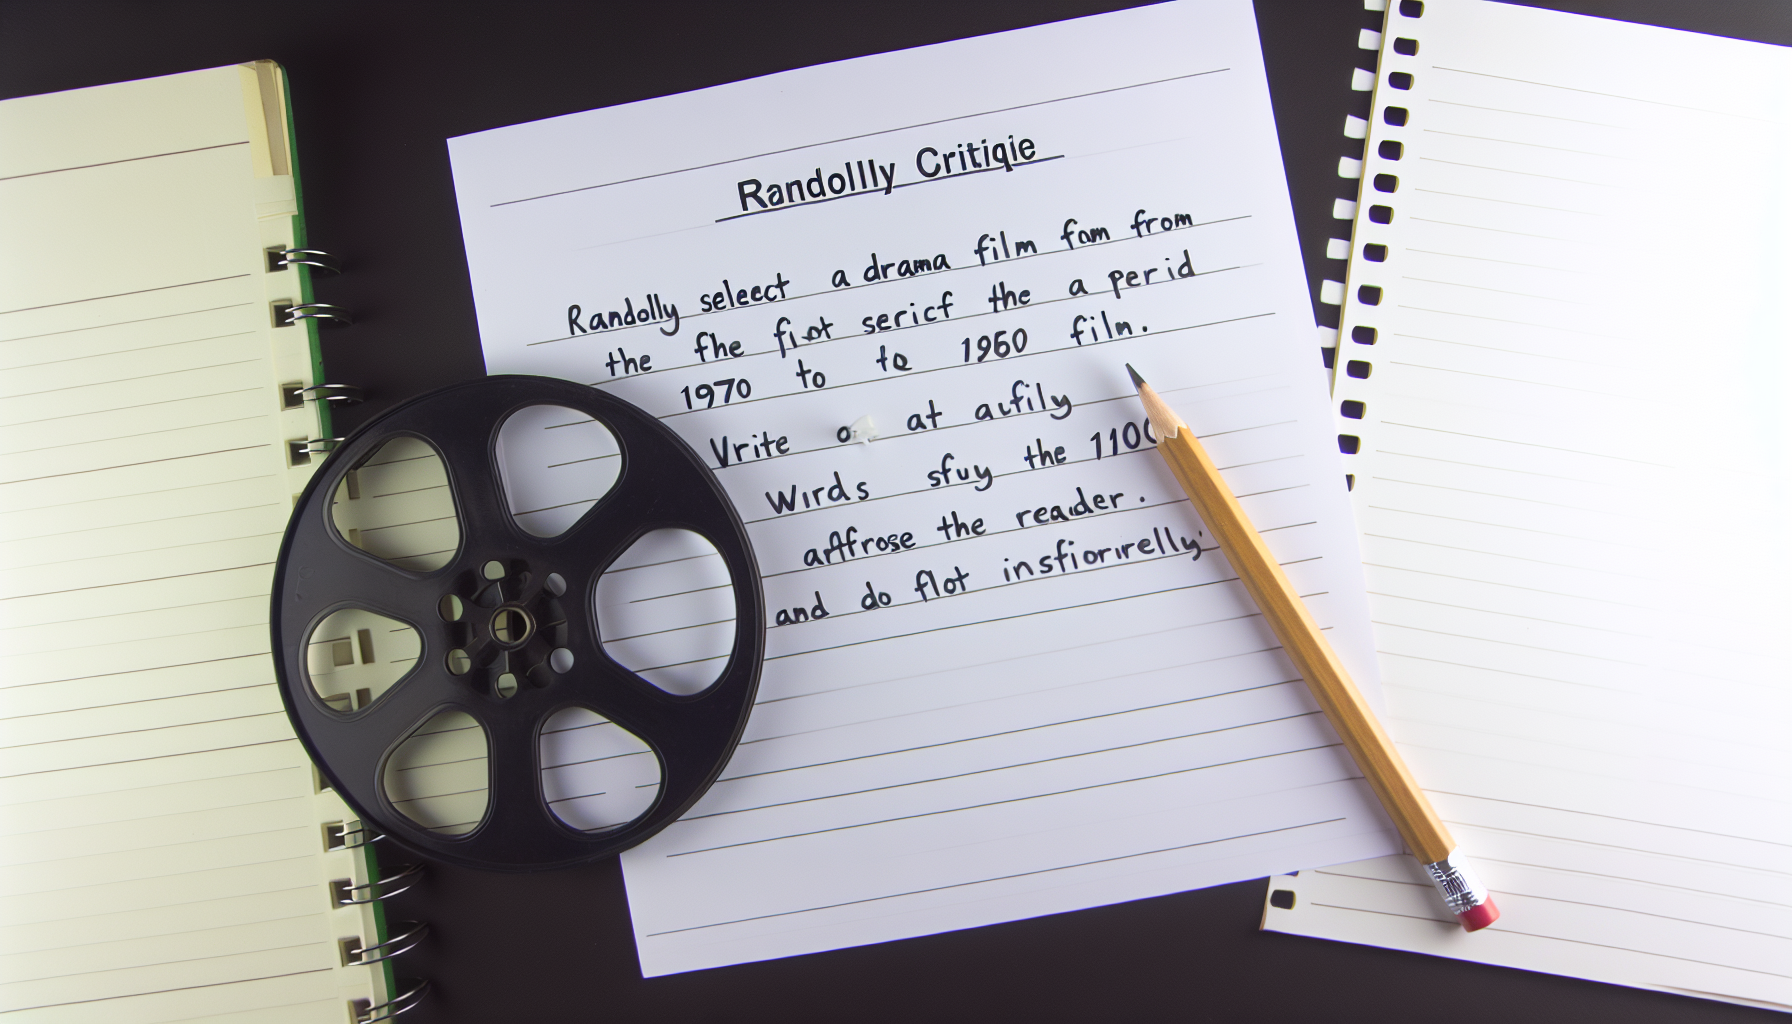 Randollly Critiqie
Randolly seleect a drama film fom from
the fhe fint sericf the a perid
1970 to to 1960 film.
Vrite at aufily
Wirds sfuy the 1100
affrose the reader.
and do flot insfiorirelly.